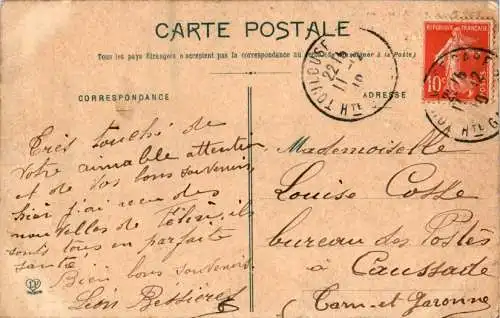 CARTE POSTALE
Tous les pays étrangers n'acceptent pas la correspondance au
à la Poste)
CORRESPONDANCE
Très touché de
votre aimable attention
et de vos bons souvenirs,
hier j'ai reçu des
nouvelles de ils
sont tous en parfaite
santé.
Bien bons souvenirs
Léon Bessières
Mademoiselle
Louise Cosse
bureau des Postes
à Caussade
(Tarn-et-Garonne)
TOULOUSE
Hte G
REPUBLIQUE FRANCAISE
10c
Hte G.